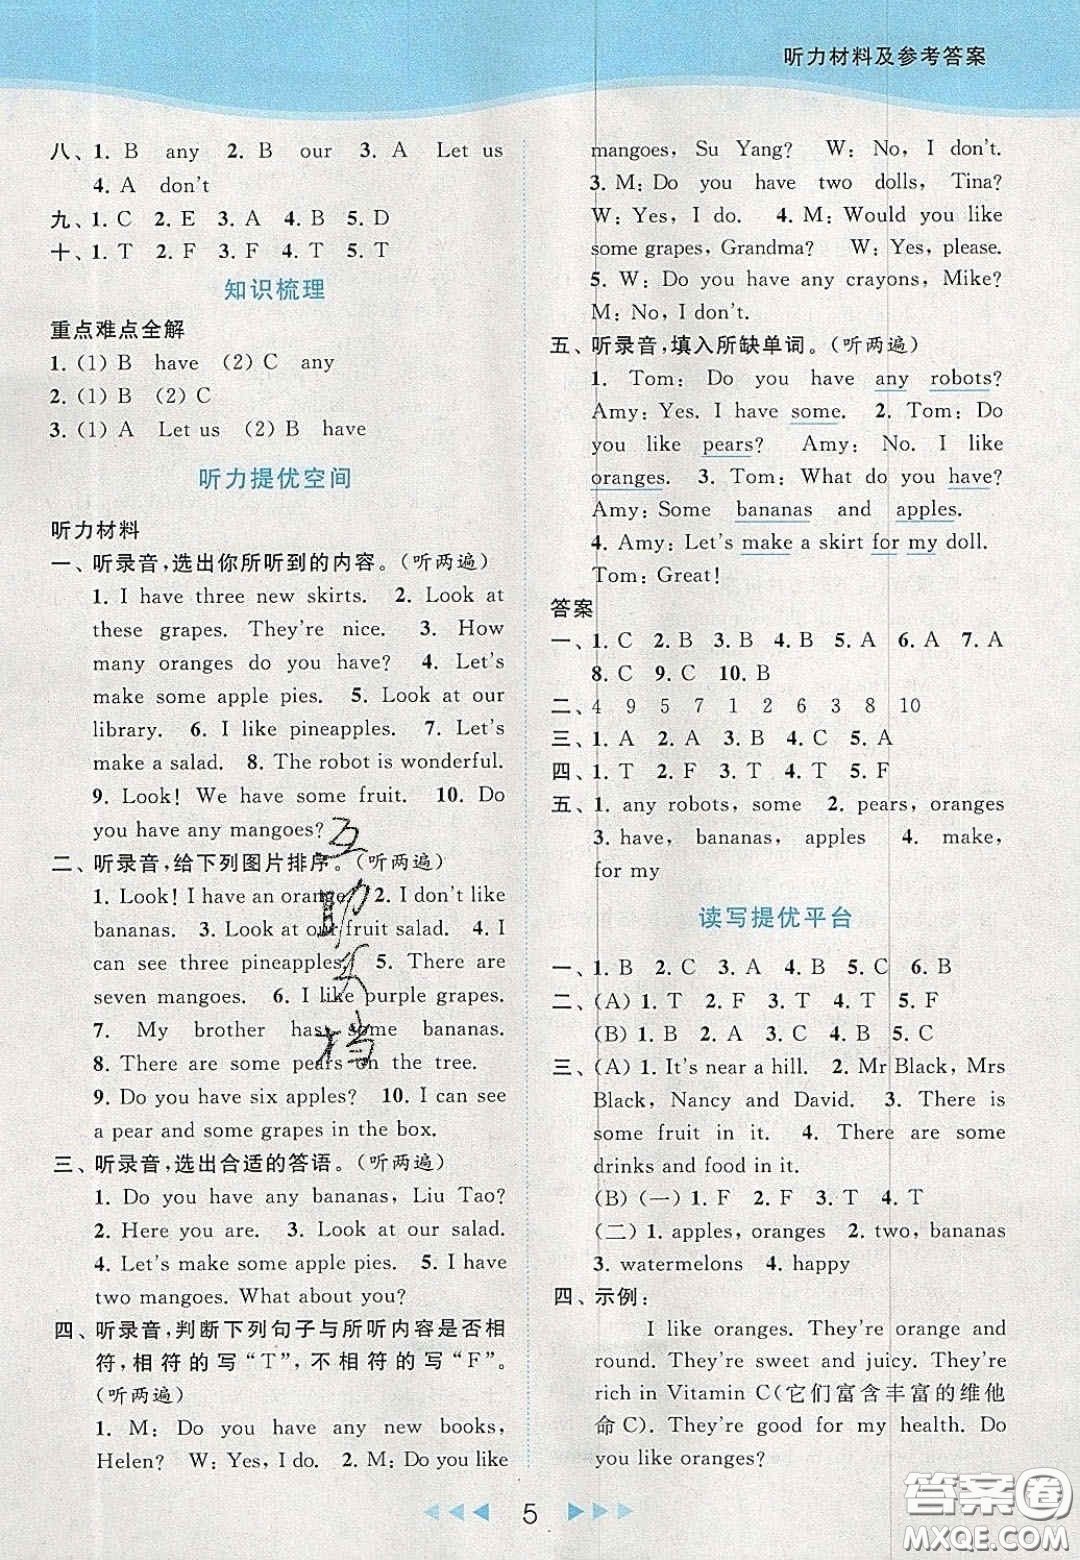 听力材料及参考答案
八、1. B any 2. B our 3. A Let us
4. A don't
九、1. C 2. E 3. A 4. B 5. D
十、1. T 2. F 3. F 4. T 5. T
知识梳理
重点难点全解
1. (1) B have (2) C any
2. (1) B (2) C
3. (1) A Let us (2) B have
听力提优空间
听力材料
一、听录音,选出你所听到的内容。(听两遍)
1. I have three new skirts. 2. Look at
these grapes. They're nice. 3. How
many oranges do you have? 4. Let's
make some apple pies. 5. Look at our
library. 6. I like pineapples. 7. Let's
make a salad. 8. The robot is wonderful.
9. Look! We have some fruit. 10. Do
you have any mangoes?
二、听录音,给下列图片排序。(听两遍)
1. Look! I have an orange. 2. I don't like
bananas. 3. Look at our fruit salad. 4. I
can see three pineapples. 5. There are
seven mangoes. 6. I like purple grapes.
7. My brother has some bananas.
8. There are some pears on the tree.
9. Do you have six apples? 10. I can see
a pear and some grapes in the box.
三、听录音,选出合适的答语。(听两遍)
1. Do you have any bananas, Liu Tao?
2. Here you are. 3. Look at our salad.
4. Let's make some apple pies. 5. I have
two mangoes. What about you?
四、听录音,判断下列句子与所听内容是否相
符,相符的写“T”,不相符的写“F”。
(听两遍)
1. M: Do you have any new books,
Helen? W: Yes, I do. 2. M: Do you like
mangoes, Su Yang? W: No, I don't.
3. M: Do you have two dolls, Tina?
W: Yes, I do. 4. M: Would you like
some grapes, Grandma? W: Yes, please.
5. W: Do you have any crayons, Mike?
M: No, I don't.
五、听录音,填入所缺单词。(听两遍)
1. Tom: Do you have any robots?
Amy: Yes. I have some. 2. Tom: Do
you like pears? Amy: No. I like
oranges. 3. Tom: What do you have?
Amy: Some bananas and apples.
4. Amy: Let's make a skirt for my doll.
Tom: Great!
答案
一、1. C 2. B 3. B 4. B 5. A 6. A 7. A
8. C 9. C 10. B
二、4 9 5 7 1 2 6 3 8 10
三、1. A 2. A 3. B 4. C 5. A
四、1. T 2. F 3. T 4. T 5. F
五、1. any robots, some 2. pears, oranges
3. have, bananas, apples 4. make,
for my
读写提优平台
一、1. B 2. C 3. A 4. B 5. C 6. B
二、(A) 1. T 2. F 3. T 4. T 5. F
(B) 1. B 2. A 3. C 4. B 5. C
三、(A) 1. It's near a hill. 2. Mr Black, Mrs
Black, Nancy and David. 3. There is
some fruit in it. 4. There are some
drinks and food in it.
(B) (一) 1. F 2. F 3. T 4. T
(二) 1. apples, oranges 2. two, bananas
3. watermelons 4. happy
四、示例:
I like oranges. They're orange and
round. They're sweet and juicy. They're
rich in Vitamin C(它们富含丰富的维他
命C). They're good for my health. Do
you like oranges?
5
互助文档
答案圈
MXQE.COM